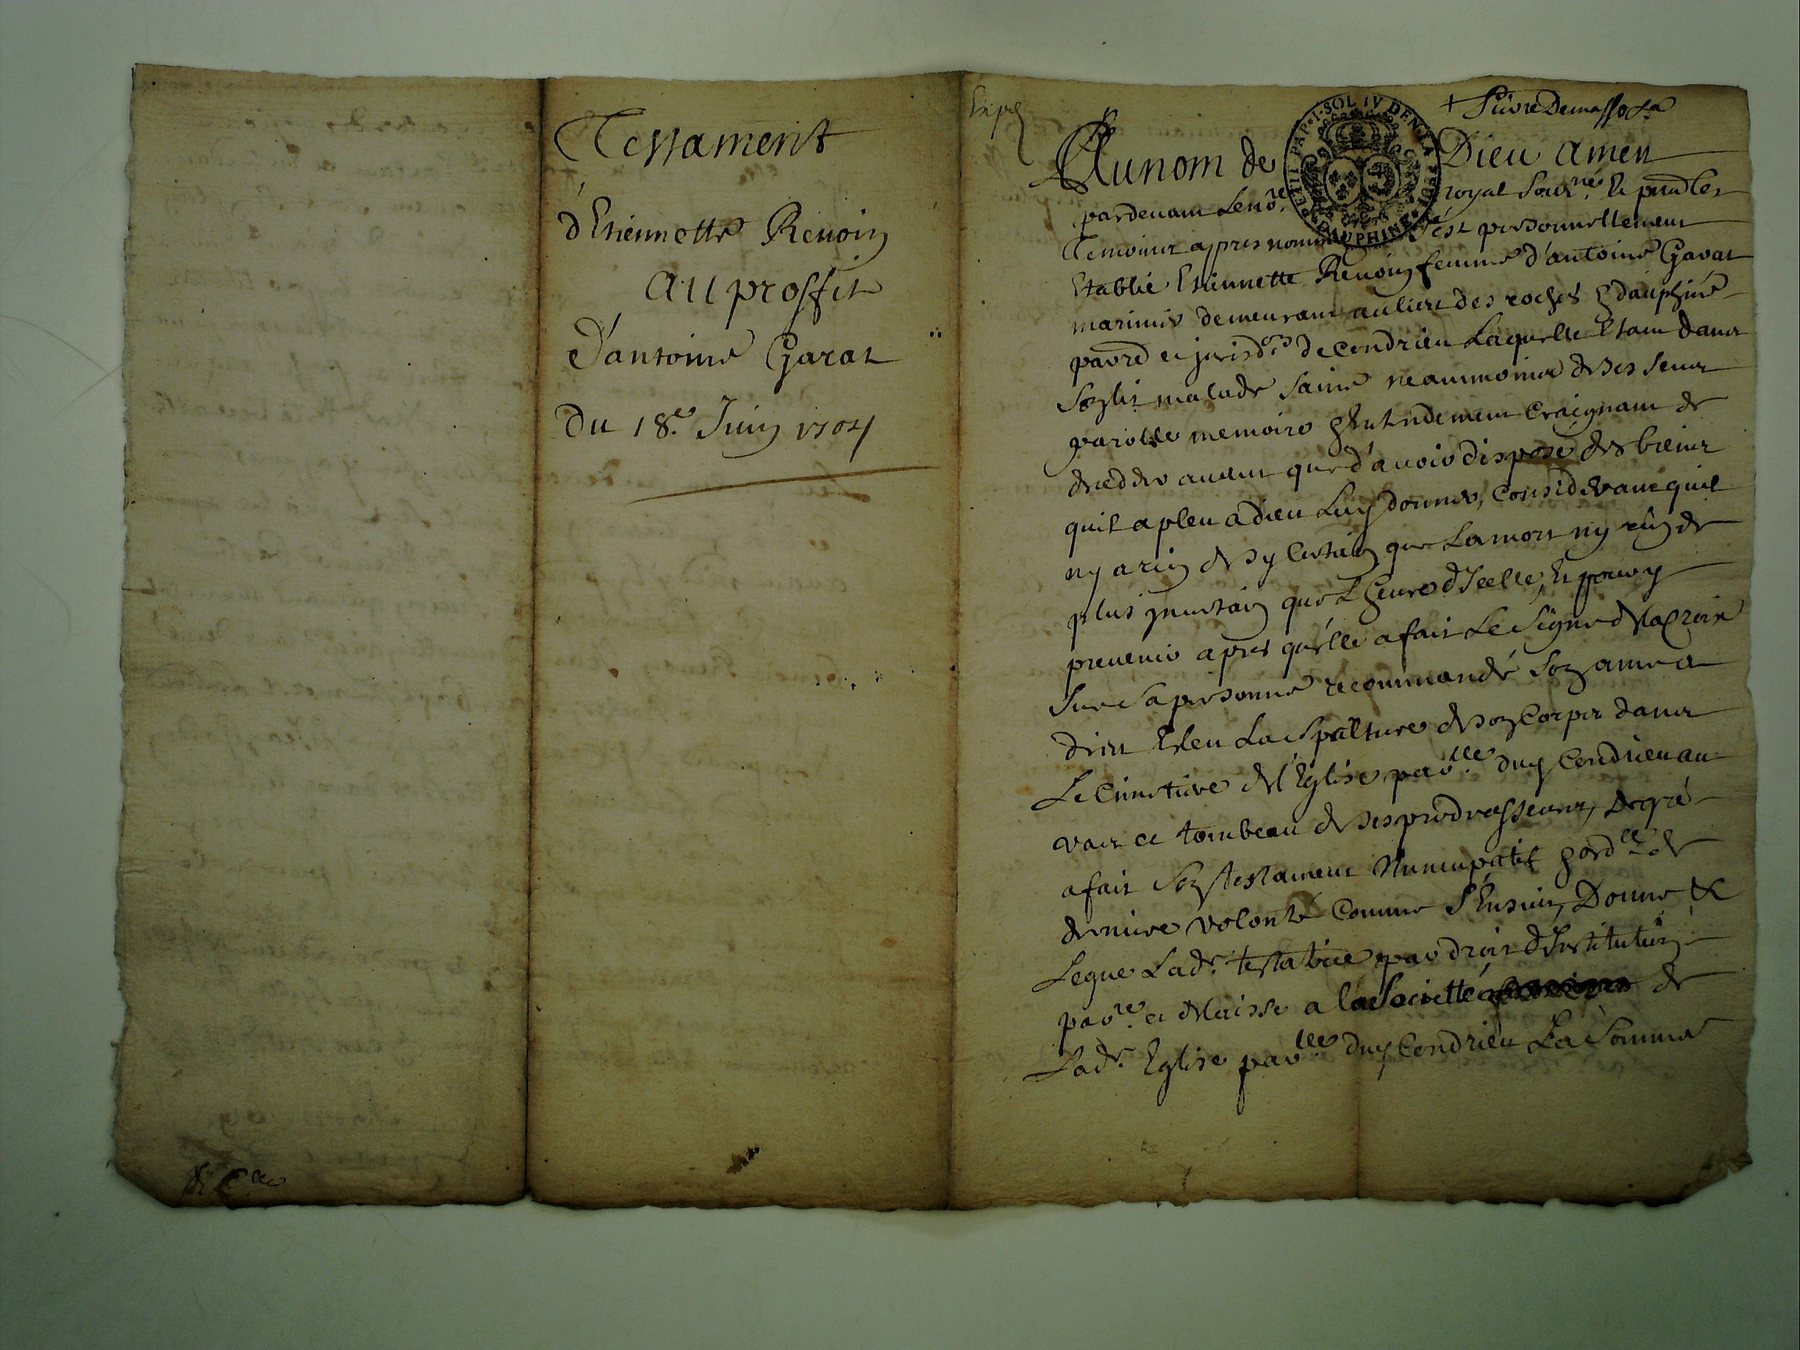 Testament
d'Etiennette Revoin
au proffit
d'antoine Garat
du 18.e Juin 1704
Expé
PETIT PAP. 1. SOL IV DEN. LA FEUI
DAUPHINE
Au nom de Dieu amen
pardevant le no.re royal sous.né & puntes
Temoins appres nommes s'est personnellement
Establie Etiennette Revoin femme d'antoine Garat
marinier demeurant au lieu des roches en dauphiné
parroe et jurisd.on de Condrieu Laquelle Etant dans
son lit malade saine neanmoins de ses sens
parolle memoire & entendement craignant de
deceder avant que d'avoir disposé des biens
quil a pleu a Dieu Luy donner, Considerant quil
ny a rien de sy certain que La mort ny rien de
plus incertain que L'heure d'Icelle, Et pour y
prevenir apres qu'elle a fait Le signe de la Croix
sur sa personne recommandé son ame a
dieu Esleu La sepulture de son Corps dans
Le Cimetiere de l'Eglise par.lle duy Condrieu au
vas et tombeau de ses predecesseurs, de gré
a fait son testament Nuncupatif & ord.ce de
derniere volonté Comme s'Ensuit, Donne &
Legue Lad.e testatrice par droit d'Institution
par.re et delaisse a la Societté de
Lad.e Eglise par.lle duy Condrieu La somme